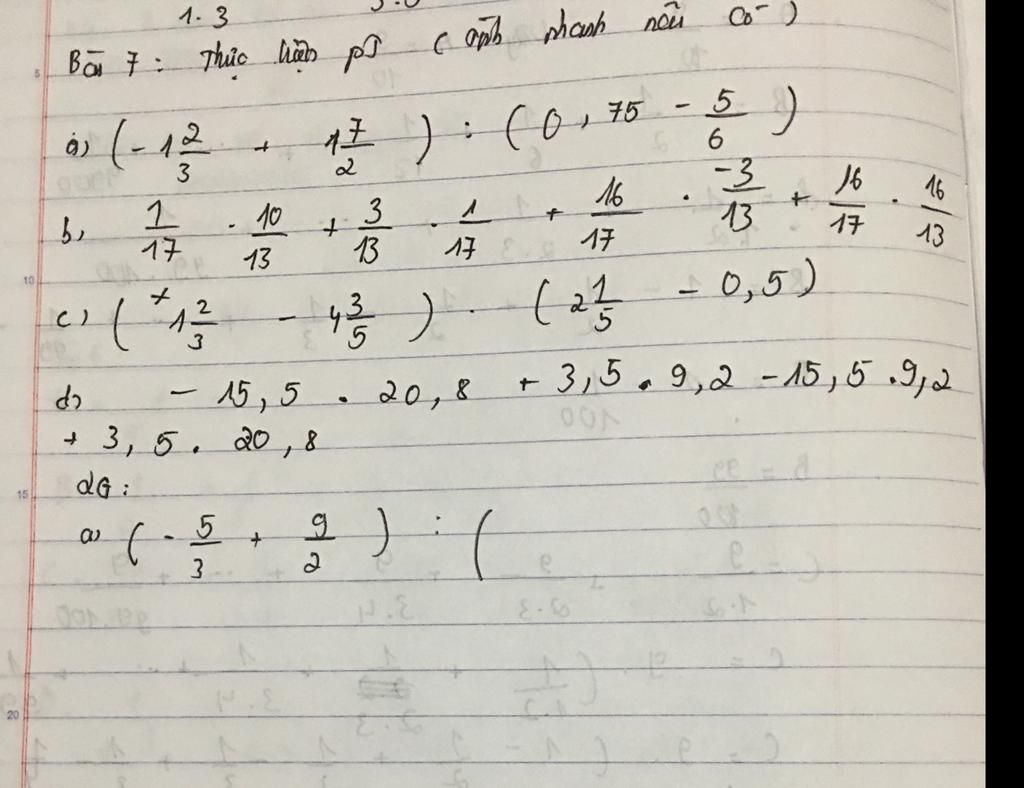 1.3
Bài 7: Thực hiện pT (tính nhanh nếu có)
a) (-1 2/3 + 1 7/2) : (0,75 - 5/6)
b, 1/17 . 10/13 + 3/13 . 1/17 + 16/17 . -3/13 + 16/17 . 16/13
c) (+1 2/3 - 4 3/5) . (2 1/5 - 0,5)
d) - 15,5 . 20,8 + 3,5 . 9,2 - 15,5 . 9,2
+ 3,5 . 20,8
dG:
a) (- 5/3 + 9/2) : (